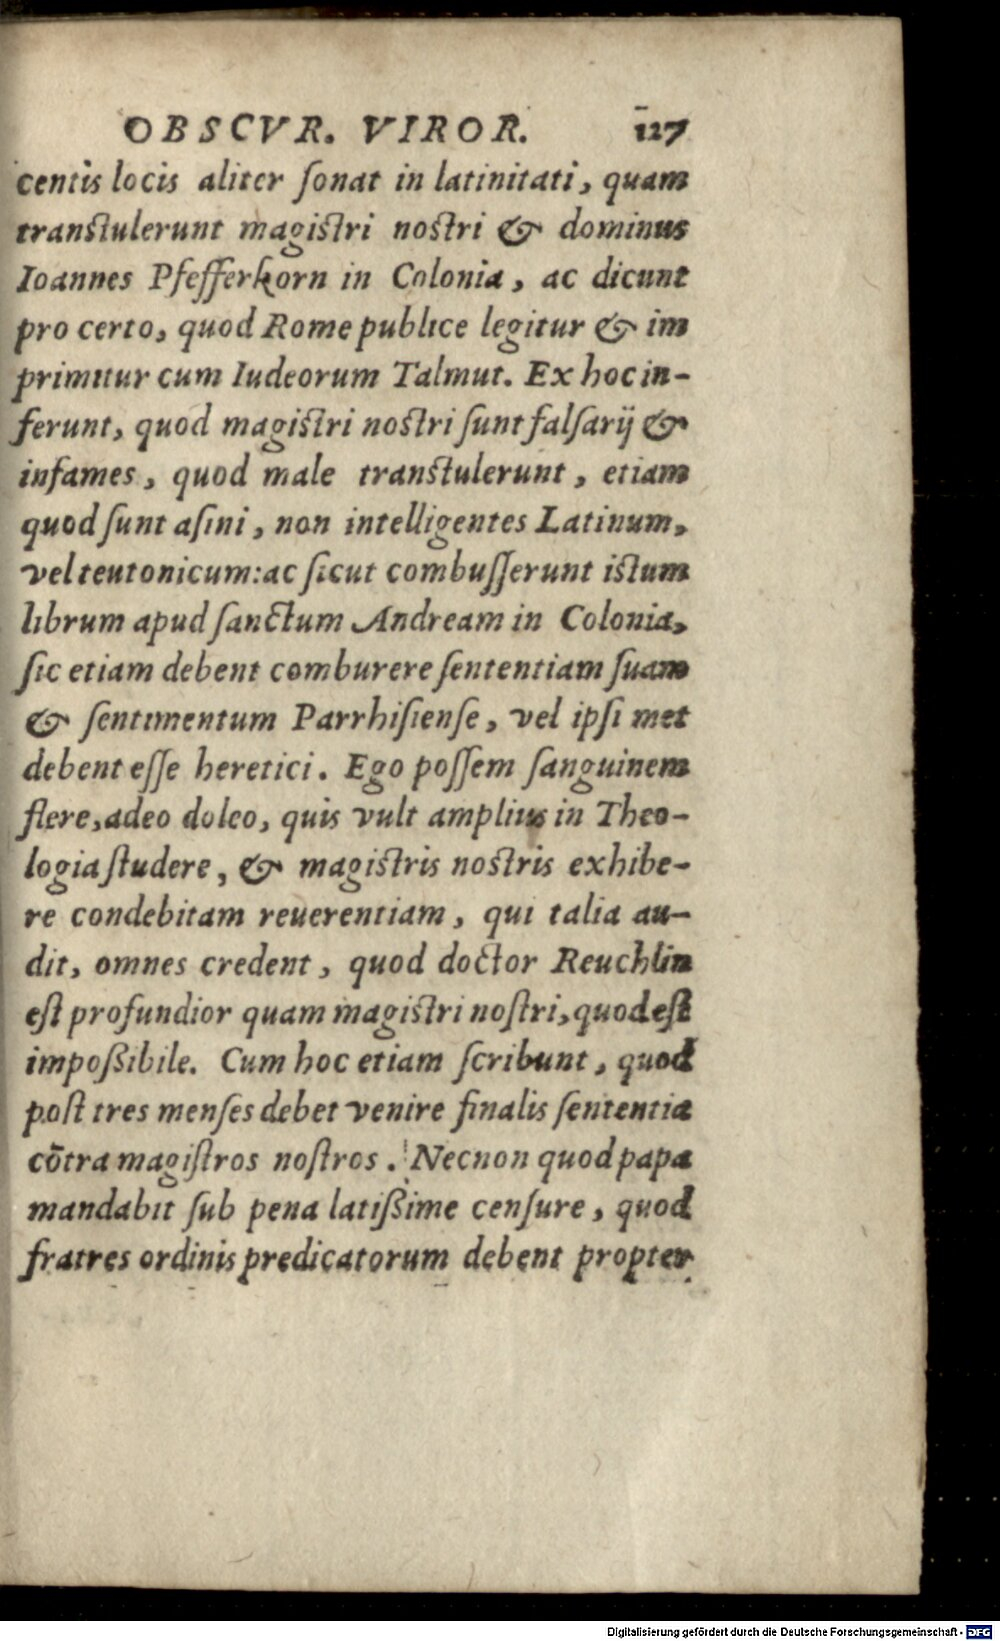 OBSCVR. VIROR. 127
centis locis aliter ſonat in latinitati, quam
tranſtulerunt magiſtri noſtri & dominus
Ioannes Pfefferkorn in Colonia, ac dicunt
pro certo, quod Rome publice legitur & im
primitur cum Iudeorum Talmut. Ex hoc in-
ferunt, quod magiſtri noſtri ſunt falſarij &
infames, quod male tranſtulerunt, etiam
quod ſunt aſini, non intelligentes Latinum,
vel teutonicum: ac ſicut combuſſerunt iſtum
librum apud ſanctum Andream in Colonia,
ſic etiam debent comburere ſententiam ſuam
& ſentimentum Parrhiſienſe, vel ipſi met
debent eſſe heretici. Ego poſſem ſanguinem
flere, adeo doleo, quis vult amplius in Theo-
logia ſtudere, & magiſtris noſtris exhibe-
re condebitam reuerentiam, qui talia au-
dit, omnes credent, quod doctor Reuchlin
eſt profundior quam magiſtri noſtri, quod eſt
impoßibile. Cum hoc etiam ſcribunt, quod
poſt tres menſes debet venire finalis ſententia
cōtra magiſtros noſtros. Necnon quod papa
mandabit ſub pena latißime cenſure, quod
fratres ordinis predicatorum debent propter
Digitalisierung gefördert durch die Deutsche Forschungsgemeinschaft - DFG